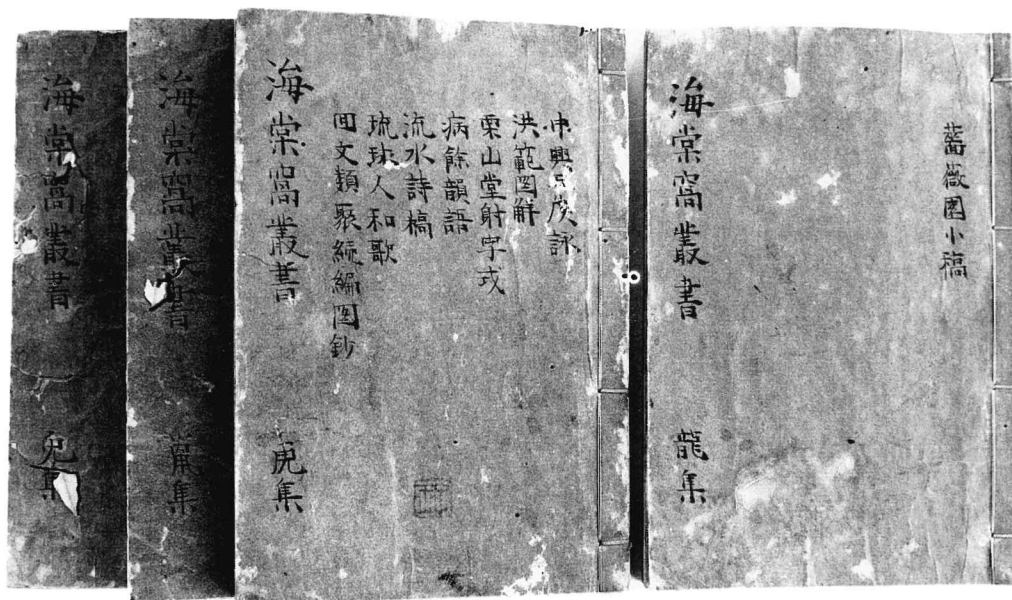 薔薇園小稿
海棠窩叢書 龍集
中興侯詠
洪範圖解
栗山堂射字式
病餘韻語
流水詩稿
琉球人和歌
回文類聚続編圖鈔
海棠窩叢書 虎集
海棠窩叢書 集
海棠窩叢書 兔集